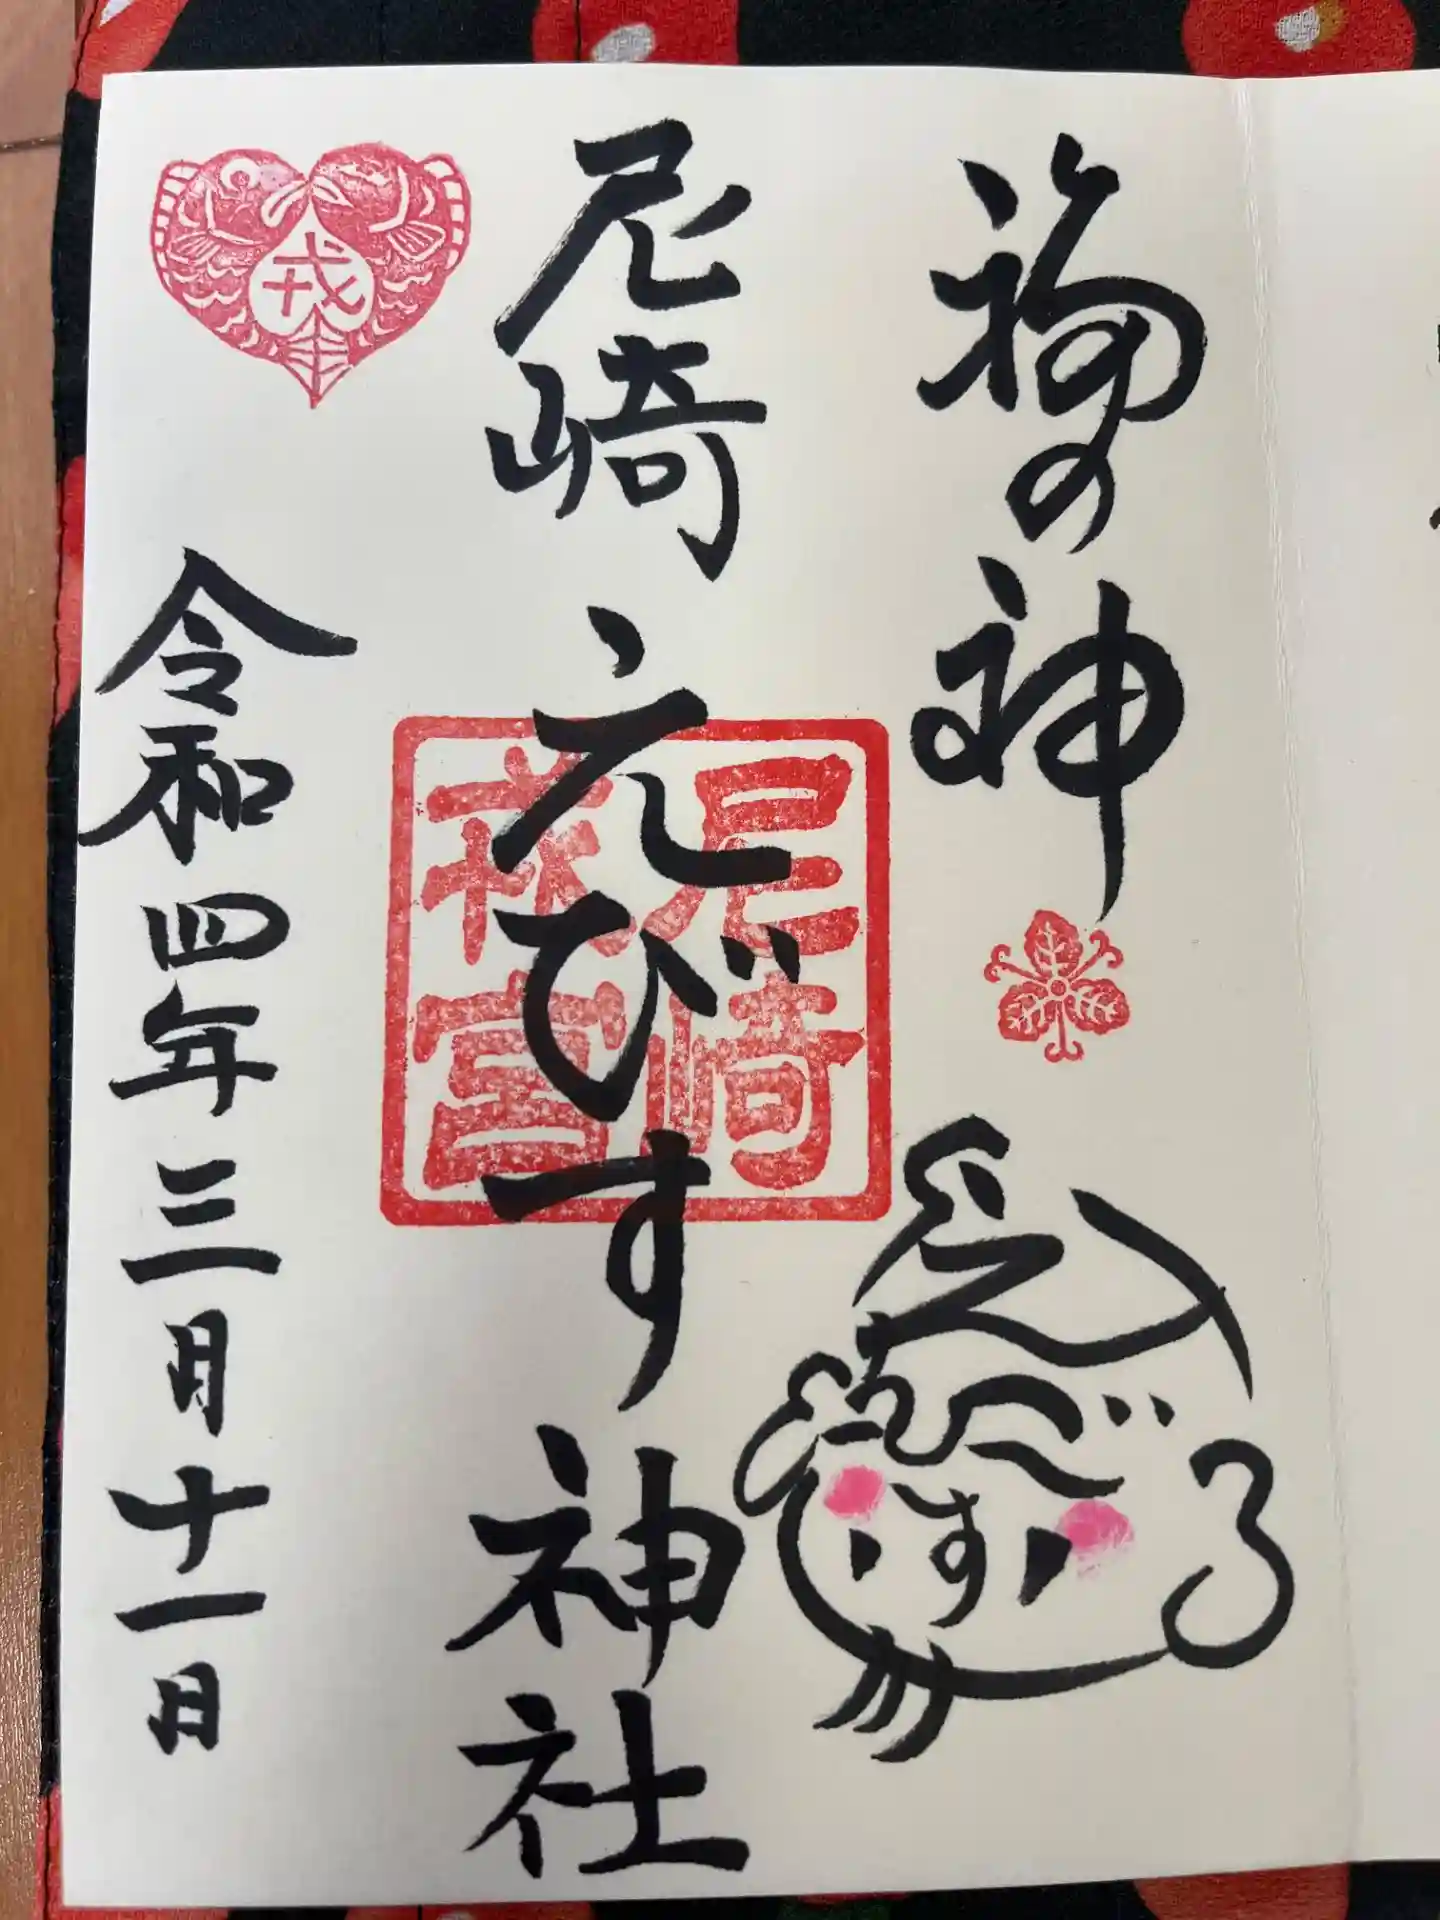 福の神
えびす
尼崎えびす神社
尼崎
令和四年三月十一日
戎